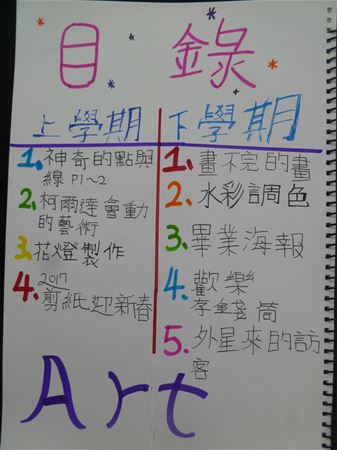 目錄
上學期
1. 神奇的點與
線 P1~2
2. 柯爾達會動
的藝術
3. 花燈製作
4. 2017
剪紙迎新春
下學期
1. 畫不完的畫
2. 水彩調色
3. 畢業海報
4. 歡樂
存錢筒
5. 外星來的訪
客
Art